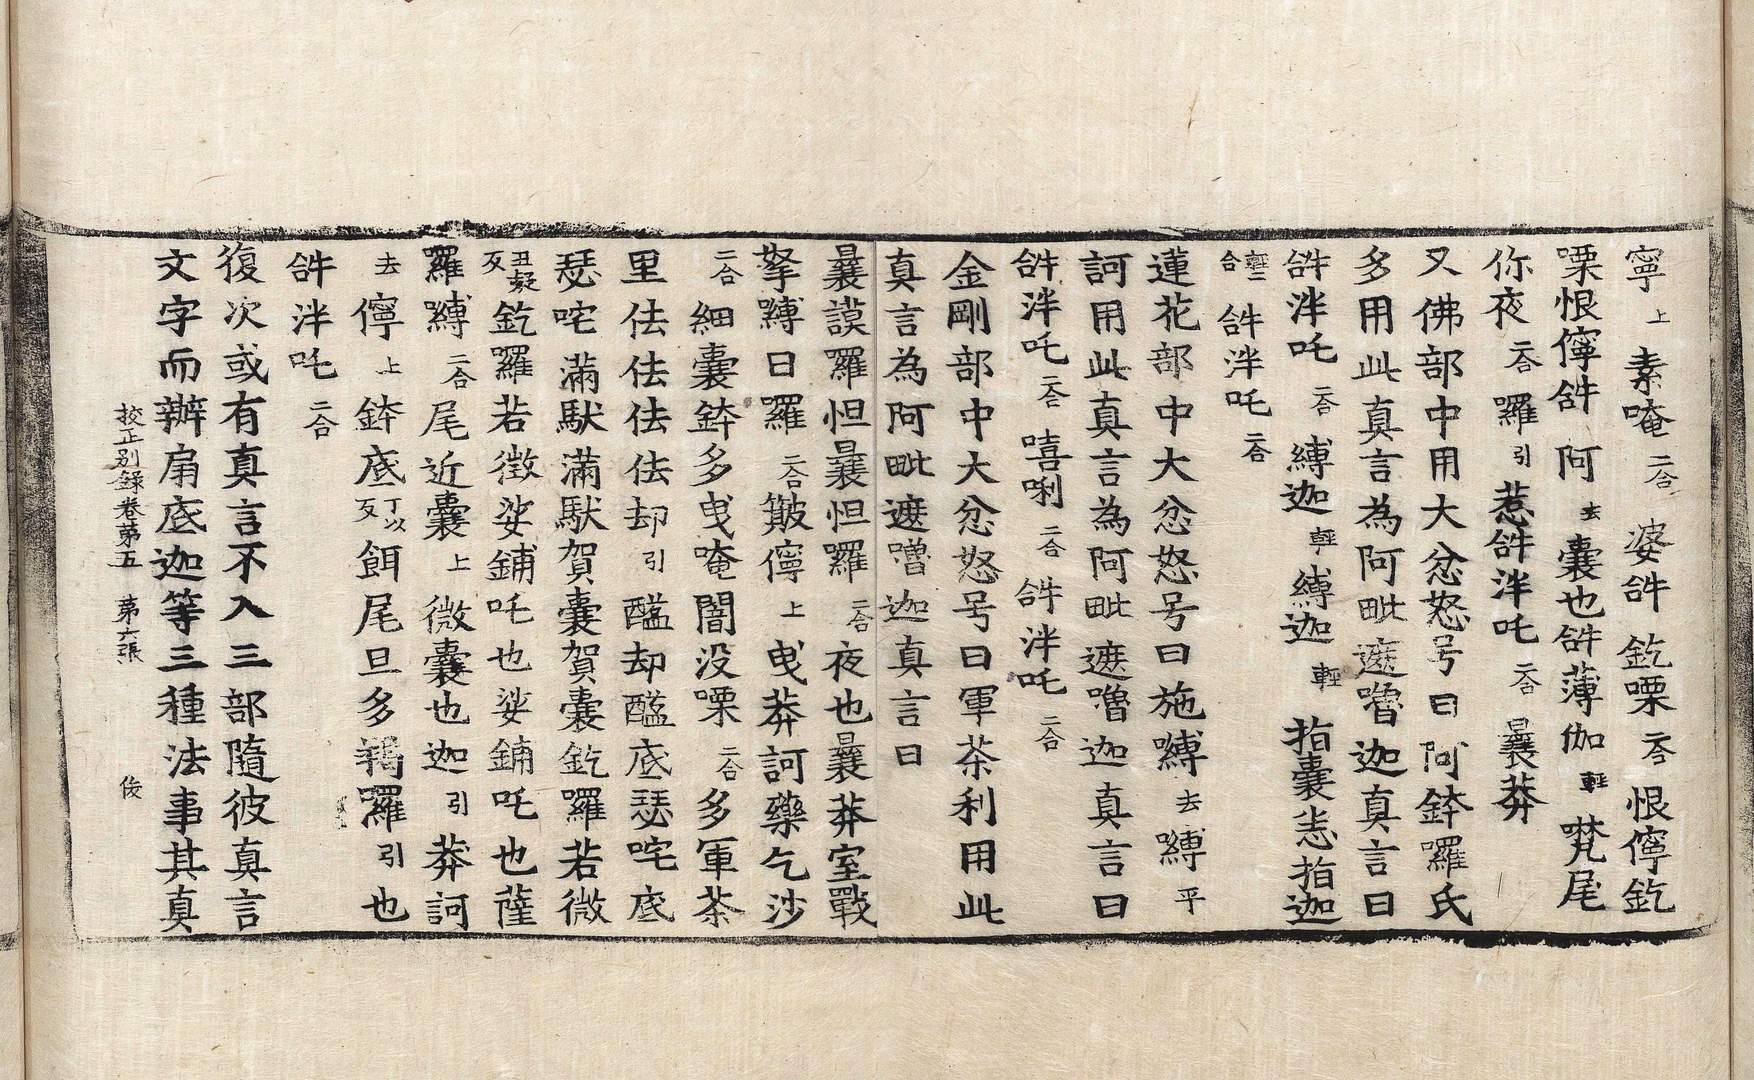 寧上素唵二合婆𤙖釳㗚二合恨儜釳
㗚恨儜𤙖阿去囊也𤙖薄伽輕㘕尾
你夜二合羅引惹𤙖泮吒二合曩莽
又佛部中用大忿怒号曰阿鉢囉氏
多用此真言為阿毗遮嚕迦真言曰
𤙖泮吒二合縛迦輕縛迦輕指囊恙指迦
輕二合𤙖泮吒二合
蓮花部中大忿怒号曰施嚩去嚩平
訶用此真言為阿毗遮嚕迦真言曰
𤙖泮吒二合嘻唎二合𤙖泮吒二合
金剛部中大忿怒号曰軍茶利用此
真言為阿毗遮嚕迦真言曰
曩謨羅怛曩怛羅二合夜也曩莽室戰
拏嚩日羅二合簸儜上曵莽訶藥乞沙
二合細囊鉢多曵唵闇没㗚二合多軍茶
里佉佉佉佉却引醯却醯底瑟咤底
瑟咤滿馱滿馱賀囊賀囊釳羅若微
丑疑反釳羅若徵娑鋪吒也娑鋪吒也薩
羅嚩二合尾近囊上微囊也迦引莽訶
去儜上鉢底丁以反餌尾旦多羯羅引也
𤙖泮吒二合
復次或有真言不入三部隨彼真言
文字而辦扇底迦等三種法事其真
挍正别録卷苐五 苐六張 俊